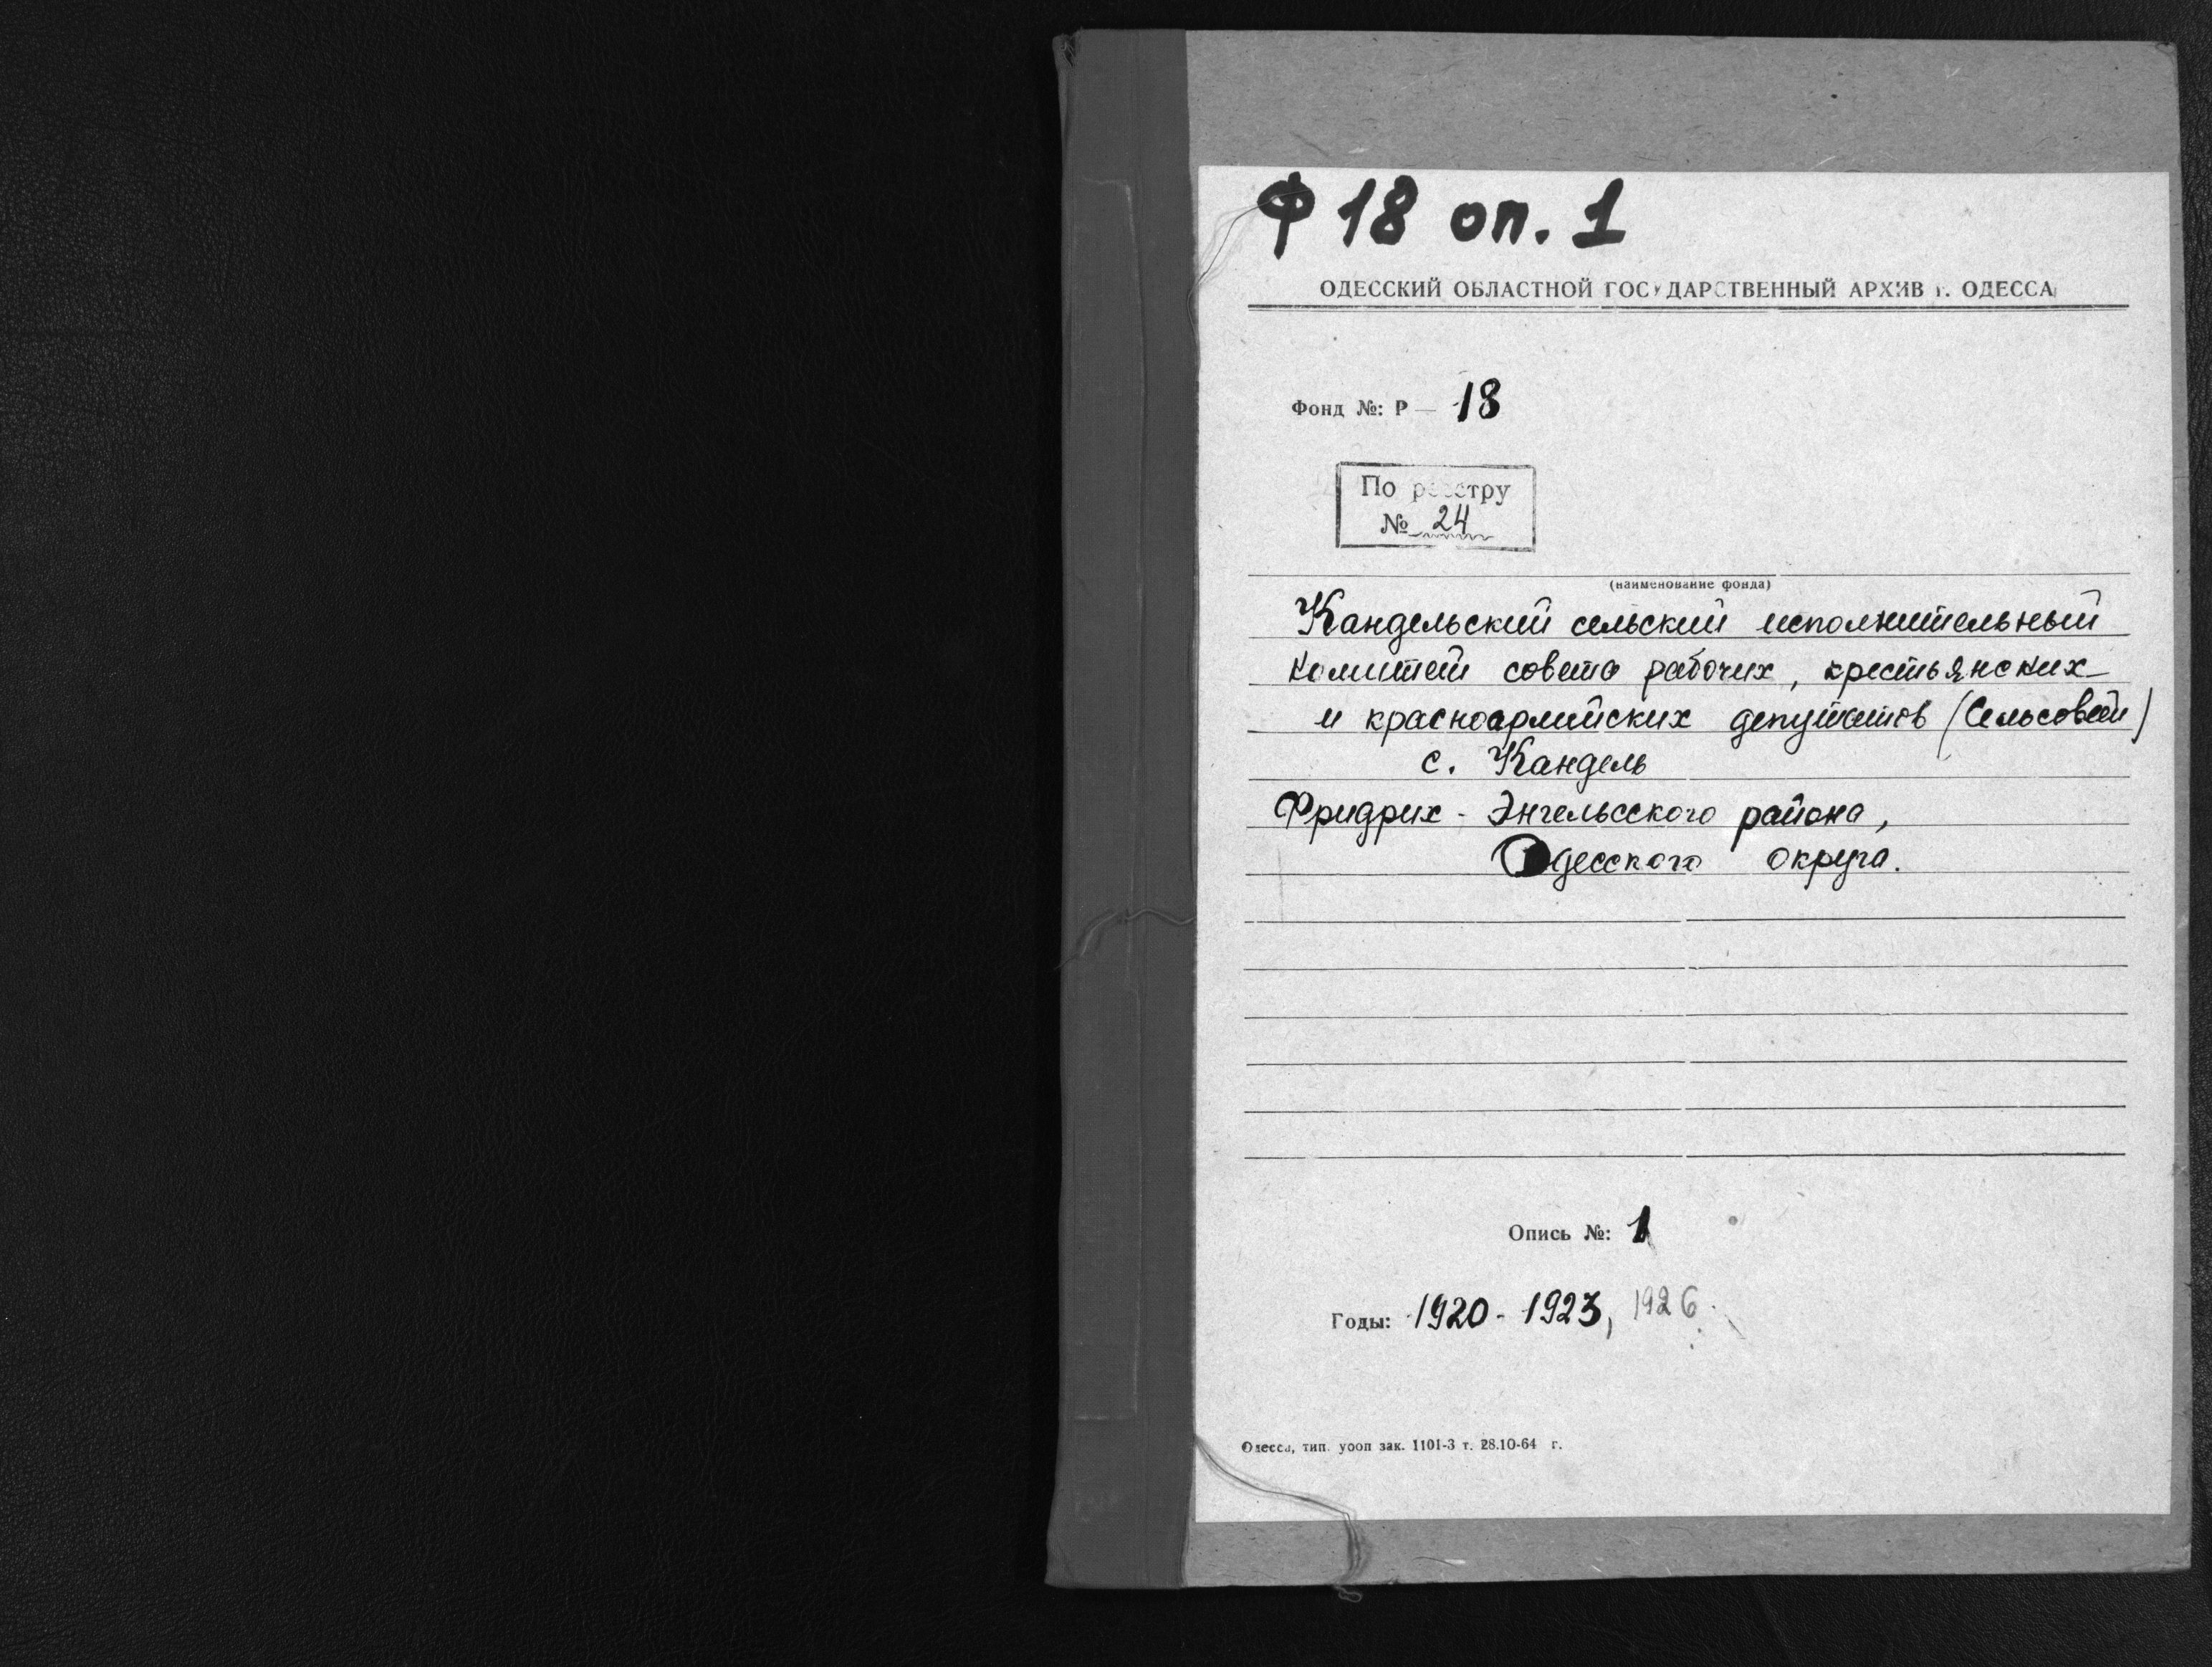 Ф 18 оп. 1
ОДЕССКИЙ ОБЛАСТНОЙ ГОСУДАРСТВЕННЫЙ АРХИВ г. ОДЕССА
Фонд №: Р — 18
По реестру
№ 24
(наименование фонда)
Кандельский сельский исполнительный
комитет совета рабочих, крестьянских
и красноармейских депутатов (Сельсовет)
с. Кандель
Фридрих - Энгельсского района,
Одесского округа.
Опись №: 1
Годы: 1920 - 1923, 1926.
Одесса, тип. уооп зак. 1101-3 т. 28.10-64 г.